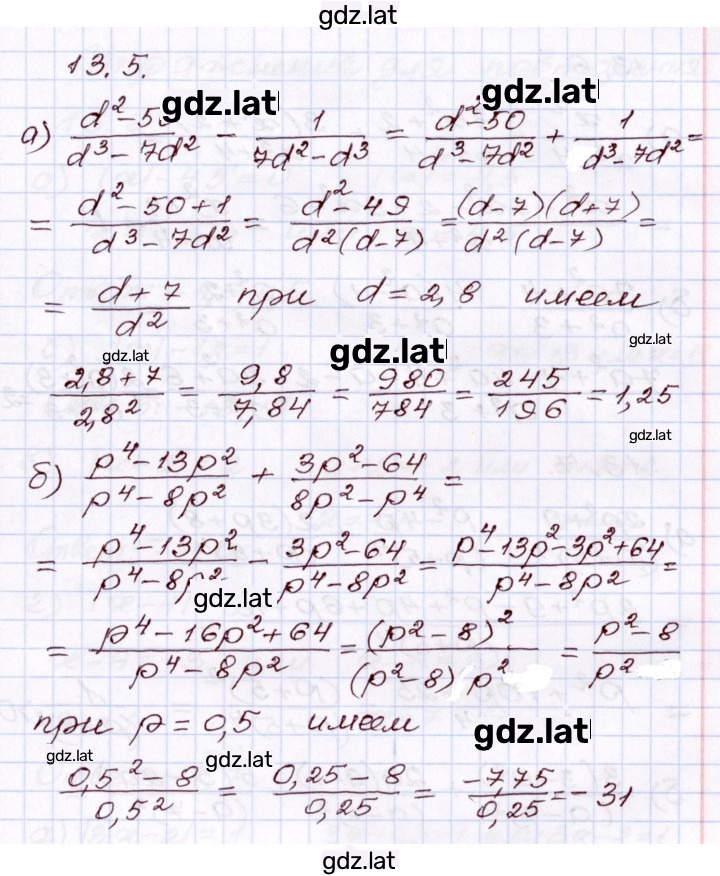 gdz.lat
13.5.
gdz.lat gdz.lat
а) (d² – 50)/(d³ – 7d²) – 1/(7d² – d³) = (d² – 50)/(d³ – 7d²) + 1/(d³ – 7d²) =
= (d² – 50 + 1)/(d³ – 7d²) = (d² – 49)/(d²(d – 7)) = (d – 7)(d + 7)/(d²(d – 7)) =
= (d + 7)/d² при d = 2,8 имеем
gdz.lat gdz.lat gdz.lat
(2,8 + 7)/2,8² = 9,8/7,84 = 980/784 = 245/196 = 1,25
gdz.lat
б) (p⁴ – 13p²)/(p⁴ – 8p²) + (3p² – 64)/(8p² – p⁴) =
= (p⁴ – 13p²)/(p⁴ – 8p²) – (3p² – 64)/(p⁴ – 8p²) = (p⁴ – 13p² – 3p² + 64)/(p⁴ – 8p²) =
gdz.lat
= (p⁴ – 16p² + 64)/(p⁴ – 8p²) = (p² – 8)²/((p² – 8)p²) = (p² – 8)/p²
при p = 0,5 имеем
gdz.lat gdz.lat
(0,5² – 8)/0,5² = (0,25 – 8)/0,25 = –7,75/0,25 = –31
gdz.lat
gdz.lat